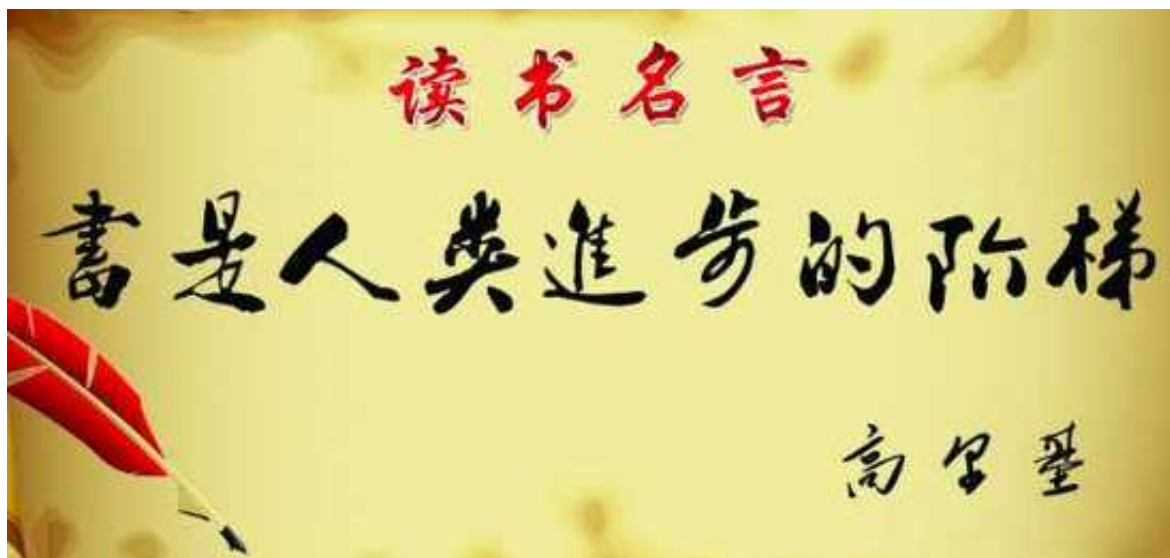 读书名言
書是人类進步的阶梯
高尔基